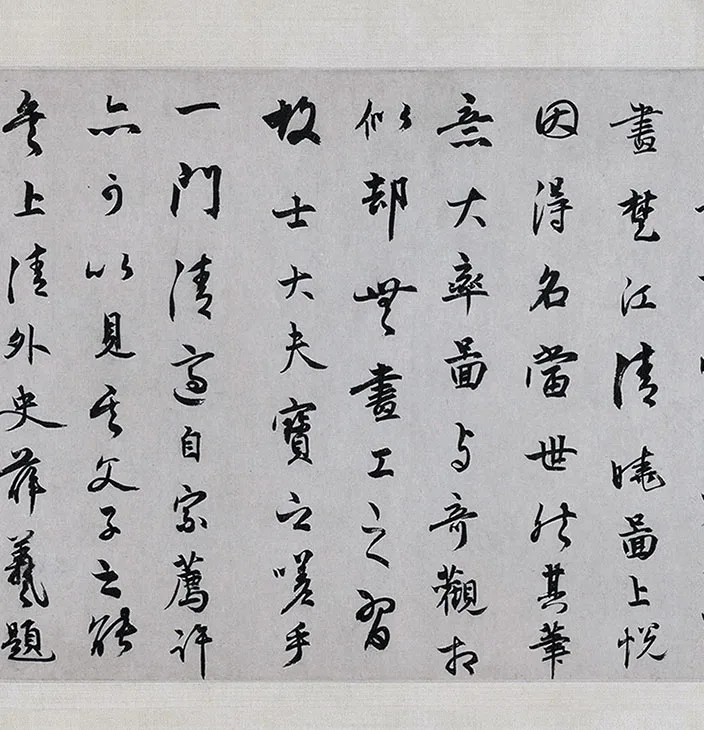 畫楚江清曉圖上悅
因得名當世然其筆
意大率圖与奇觀相
似却無畫工之習
故士大夫寶之嗟乎
一門清適自家薦許
亦可以見其父子之能
矣上清外史薛羲題